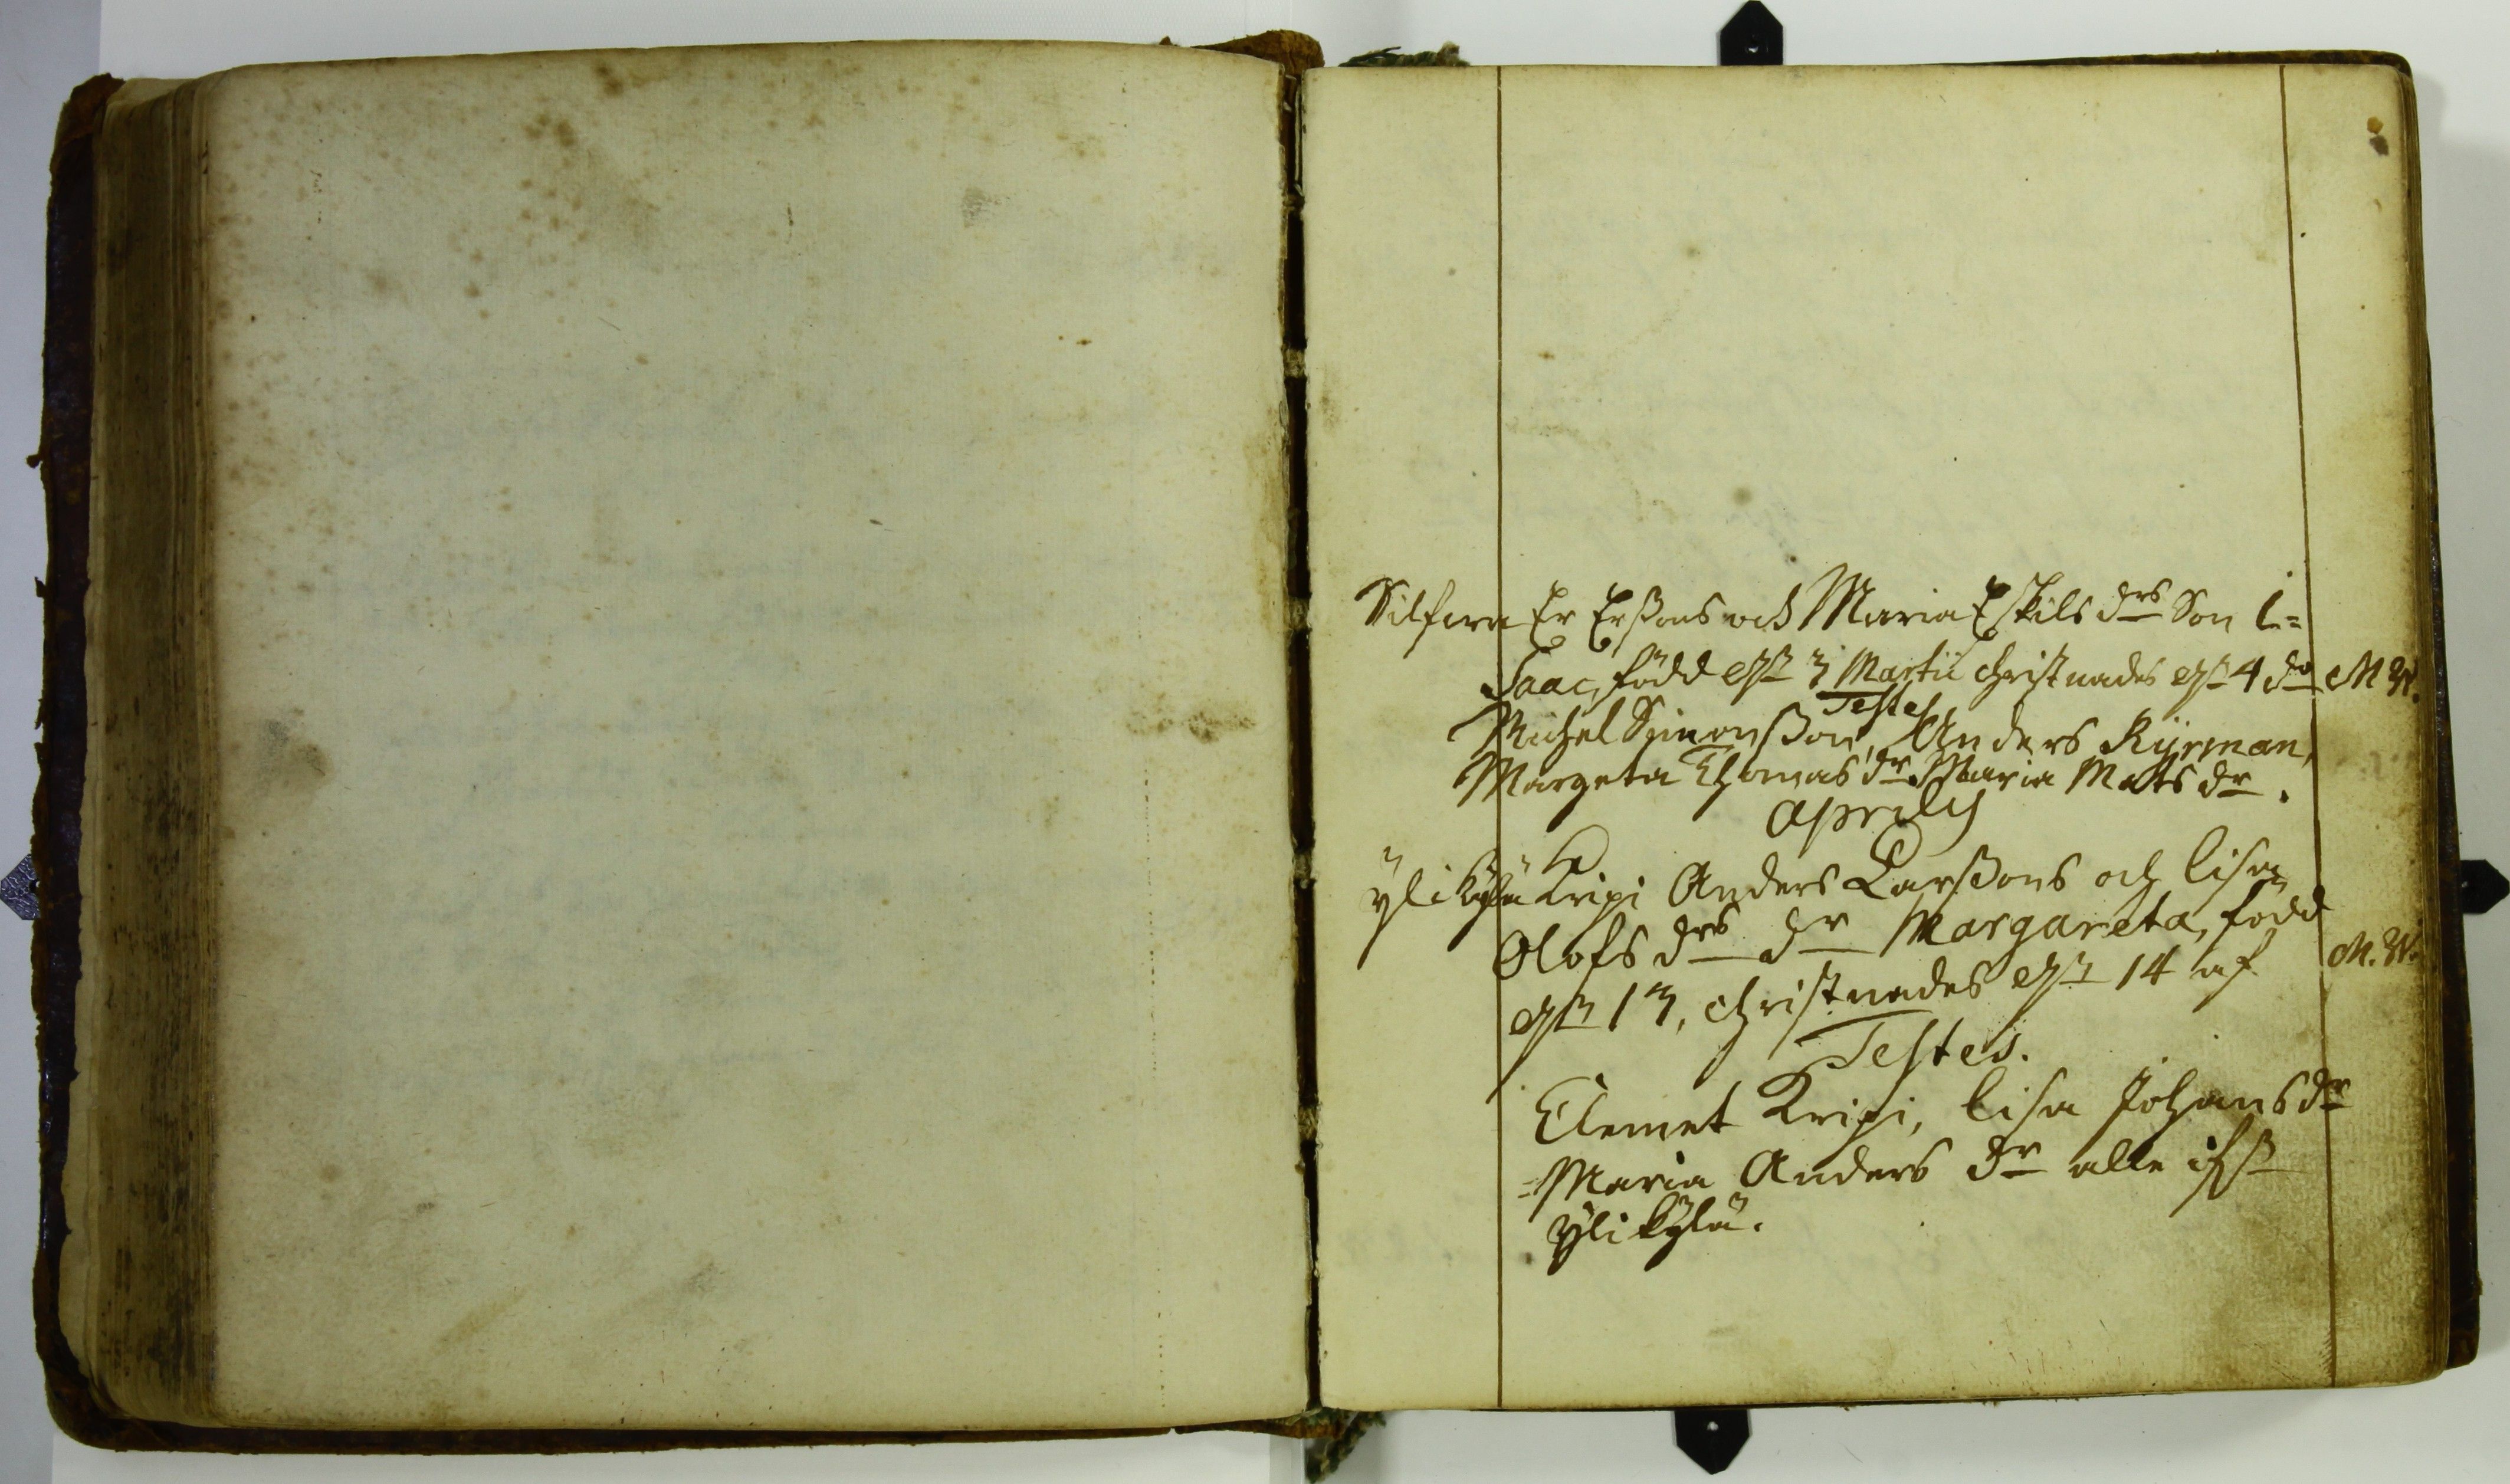 Silfvera Er Erssons och Maria Eskils drs Son I=
saac, född d. 3 Martii christnades d. 4 do M W.
Testes
Michel Simonsson, Anders Kyrman,
Margeta Thomas dr Maria Mats dr.
Aprilis
Ylikylä Kripi Anders Larssons och Lisa
Olofs drs dr Margareta, född
d. 13, christnades d. 14 af M. W.
Testes.
Clemet Kripi, Lisa Johans dr
Maria Anders dr alle ifr.
Ylikylä.